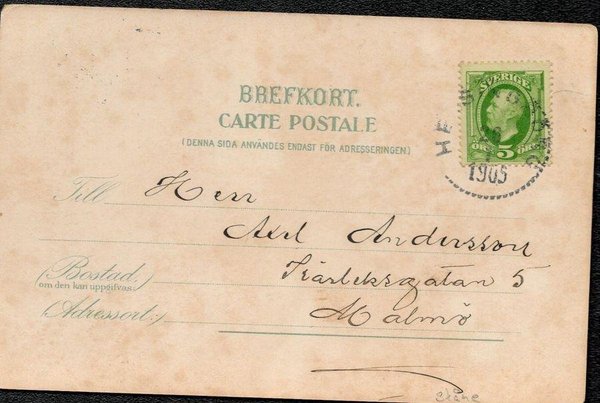 SVERIGE
5
ÖRE
1905
BREFKORT.
CARTE POSTALE
(DENNA SIDA ANVÄNDES ENDAST FÖR ADRESSERINGEN)
Till Herr
Axel Andersson
(Bostad) Kärleksgatan 5
om den kan uppgifvas
(Adressort:) Malmö
skåne